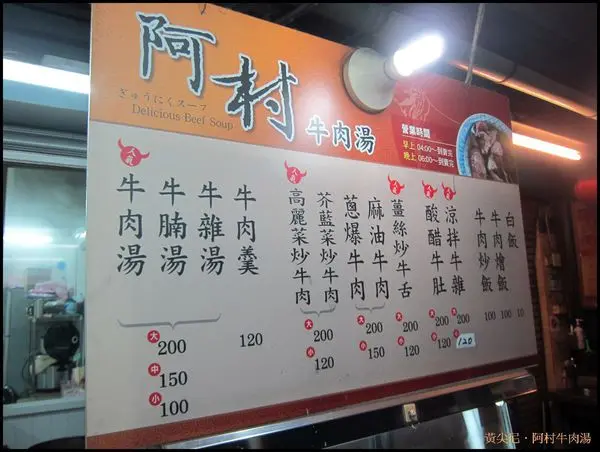 阿村
牛肉湯
ぎゅうにくスープ
Delicious Beef Soup
營業時間
早上 04:00~到賣完
晚上 06:00~到賣完
人氣
牛肉湯
牛腩湯
牛雜湯
大 200
中 150
小 100
牛肉羹
120
人氣
高麗菜炒牛肉
芥藍菜炒牛肉
大 200
小 120
蔥爆牛肉
麻油牛肉
大 200
小 150
人氣
薑絲炒牛舌
大 200
小 120
人氣
酸醋牛肚
大 200
小 120
人氣
涼拌牛雜
大 200
小 120
牛肉炒飯
100
牛肉燴飯
100
白飯
10
黃尖尼・阿村牛肉湯